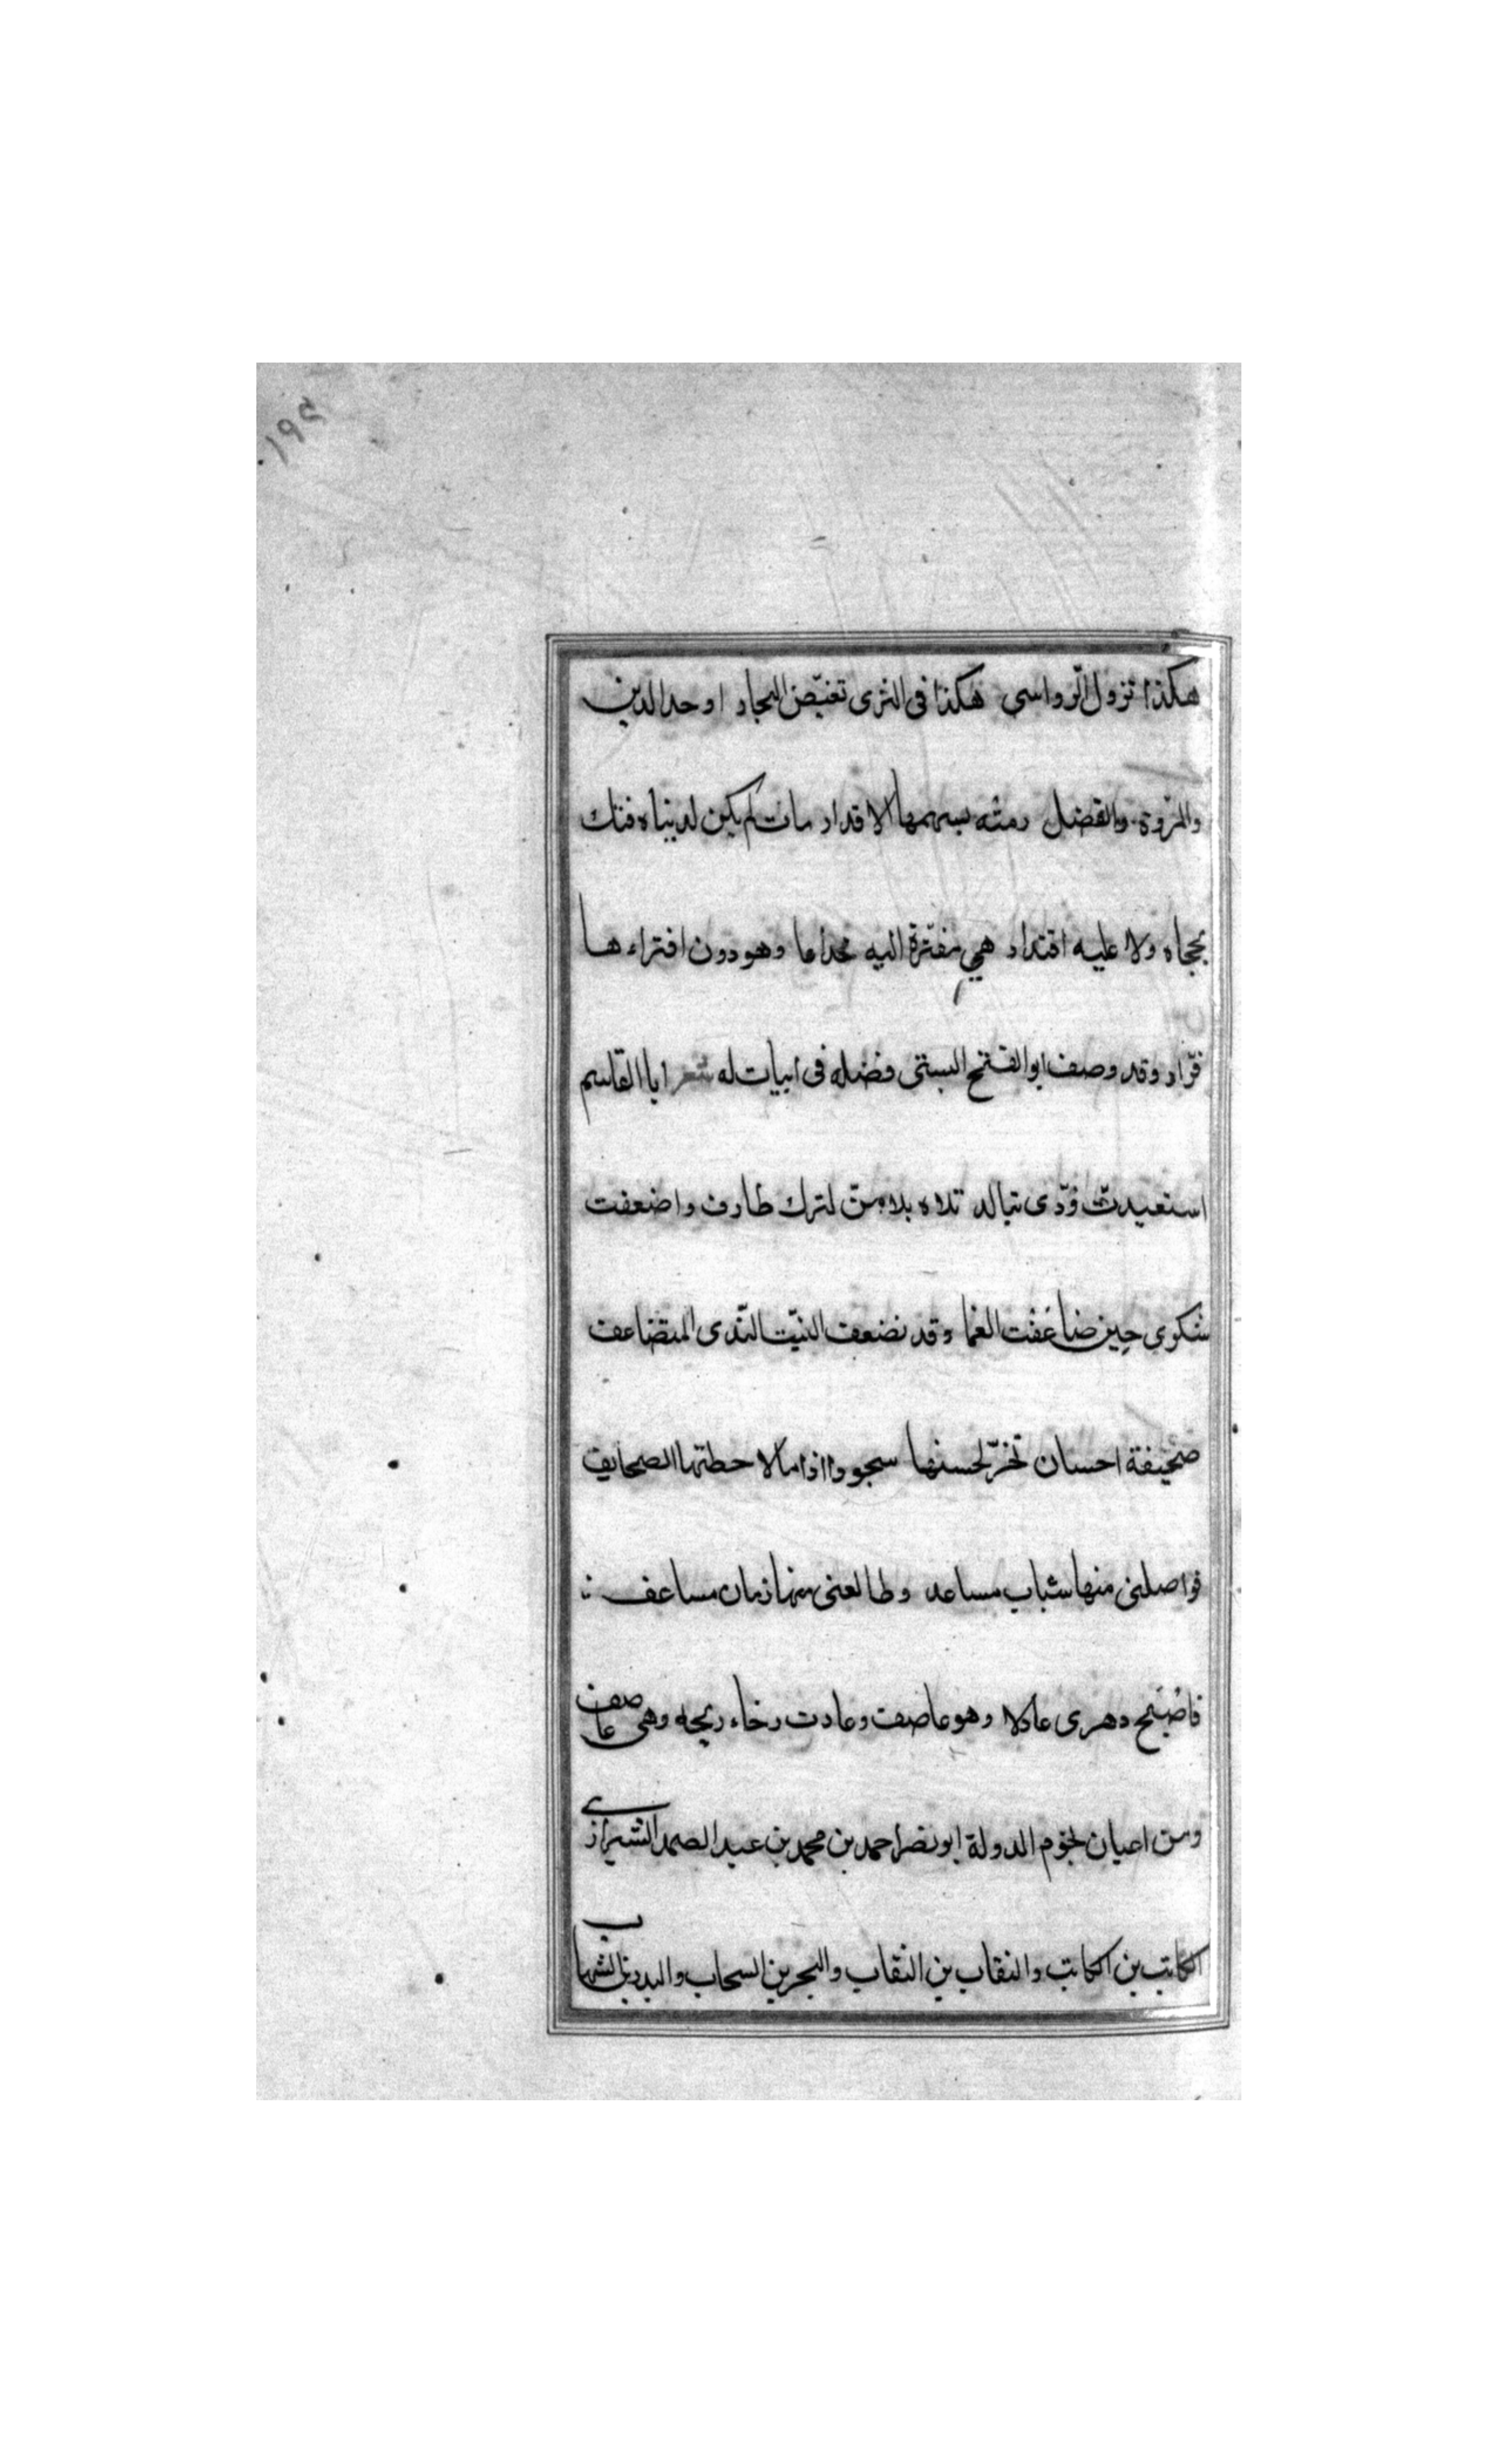 ١٩٥
هكذا تزول الرواسى هكذا فى الثرى تغيّض البحار اوحد الدين
والمروة والفضل رمته بسهمها الاقدار مات لم يكن لدنياه فتك
بحجاه ولا عليه اقتدار هي مفترة اليه خداعا وهو دون افتراءها
فرّار وقد وصف ابوالفتح البستى فضله فى ابيات له شعر ابا القاسم
استعبدتّ ودّى بتالد تلاه بلا منّ لترك طارف واضعفت
شكوى حين ضاعَفْت النعما وقد نضعف النبت النّدى المتضاعف
صحيفة احسان تخرّ لحسنها سجوودا اذا ما لاحظتها الصحايف
فواصلنى منها شباب مساعد وطالعنى منها زمان مساعف
فاصْبَح دهرى عادلا وهو عاصف وعادت رخاء ريحه وهى عاصف
ومن اعيان نجوم الدولة ابو نصر احمد بن محمد بن عبد الصمد الشيرازى
الكاتب بن الكاتب والنقاب بن النقاب والبحر بن السحاب والبدر بن الشهاب